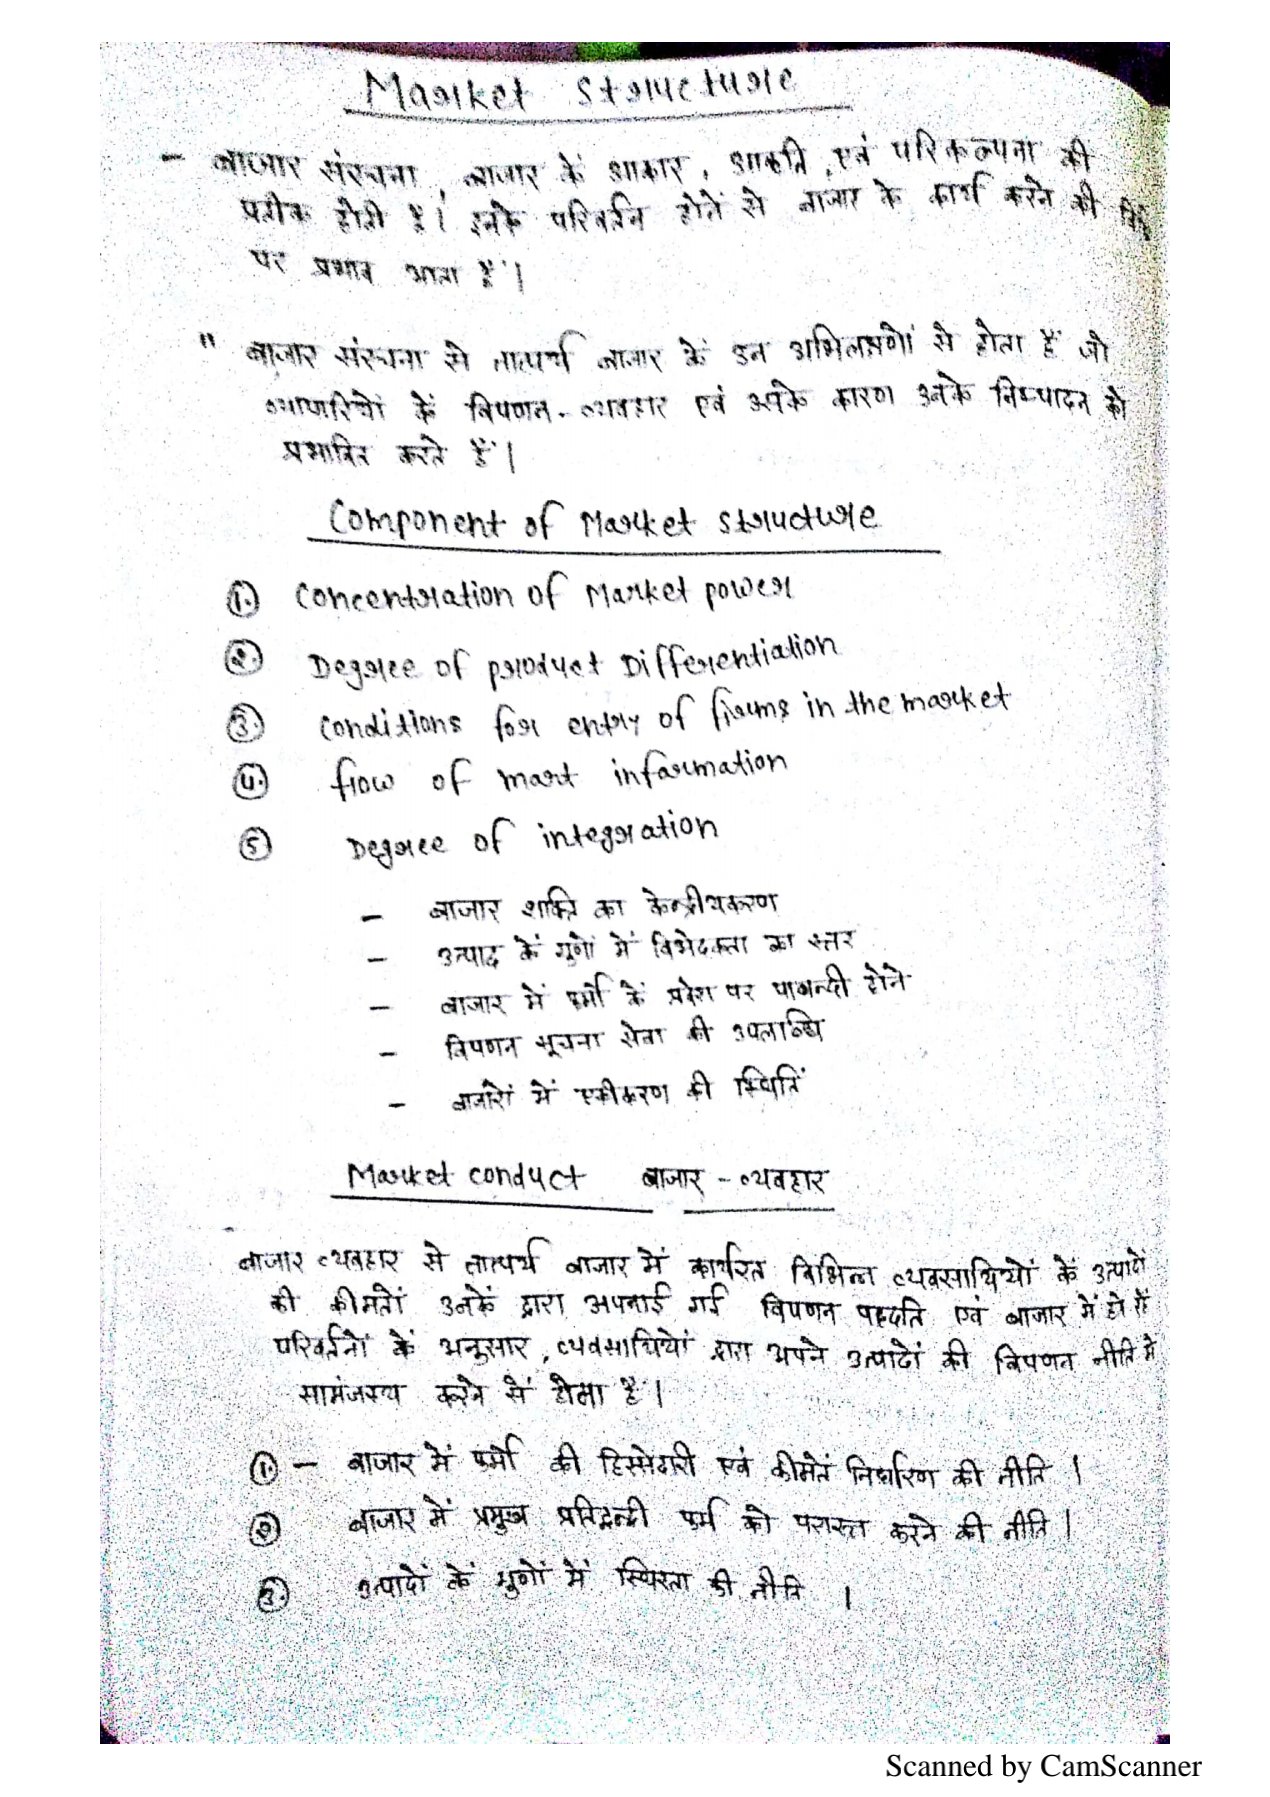 Market structure
– बाजार संरचना, बाजार के आकार, आकृति, एवं परिकल्पना की
प्रतीक होती है। इनके परिवर्तन होने से बाजार के कार्य करने की
पर प्रभाव आता है।
" बाजार संरचना से तात्पर्य बाजार के उन अभिलक्षणों से होता हैं जो
व्यापारियों के विपणन-व्यवहार एवं उसके कारण उनके निष्पादन को
प्रभावित करते हैं।
Component of Market structure
1. Concentration of Market power
2. Degree of product Differentiation
3. conditions for entry of firms in the market
4. flow of mart information
5 Degree of integration
– बाजार शक्ति का केन्द्रीयकरण
– उत्पाद के गुणों में विभेदकता का स्तर
– बाजार में फर्मों के प्रवेश पर पाबन्दी होने
– विपणन सूचना सेवा की उपलब्धि
– बाजारों में एकीकरण की स्थिति
Market conduct बाजार - व्यवहार
बाजार व्यवहार से तात्पर्य बाजार में कार्यरत विभिन्न व्यवसायियों के उत्पादों
की कीमतों उनके द्वारा अपनाई गई विपणन पद्धति एवं बाजार में हो रहे
परिवर्तनों के अनुसार, व्यवसायियों द्वारा अपने उत्पादों की विपणन नीति में
सामंजस्य करने से होता है।
1. – बाजार में फर्मों की हिस्सेदारी एवं कीमतें निर्धारण की नीति।
2 बाजार में प्रमुख प्रतिद्वन्दी फर्म को परास्त करने की नीति।
3. उत्पादों के गुणों में स्थिरता की नीति ।
Scanned by CamScanner